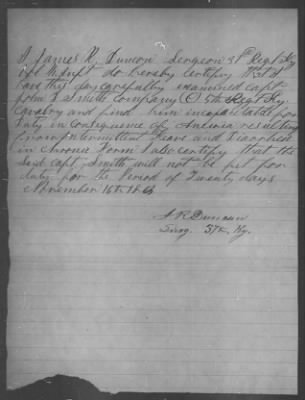 I James R. Duncan Surgeon 37th Regt Ky
Vol M Inft do hereby certify that I
have this day carefully examined capt
John I Smith Company (C) 5th Regt Ky
Cavalry and find him incapacitated for
duty in consequence of Anemia resulting
from Intermittent Fever and Diarrhoea
in chronic Form I also certify that the
Said capt Smith will not be fit for
duty for the Period of Twenty days
November 16th 1863
J R Duncan
Surg. 37th Ky.